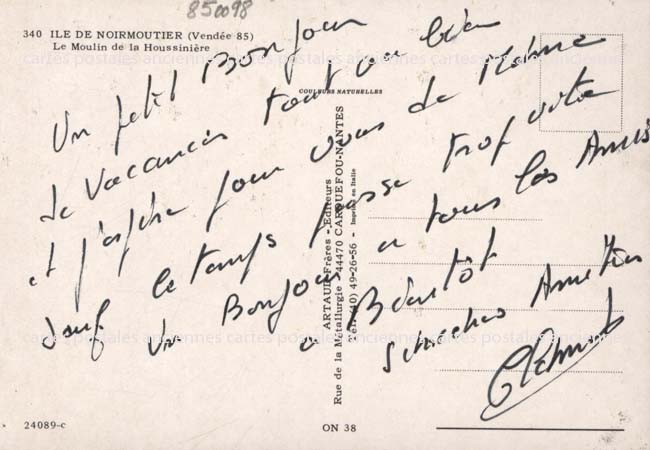 850098
340 ILE DE NOIRMOUTIER (Vendée 85)
Le Moulin de la Houssinière
cartes postales anciennes cartes postales anciennes cartes postales anciennes
COULEURS NATURELLES
Un petit Bonjour
de vacances tout va bien
et j'espère pour vous de même
sauf le temps passe trop vite
un Bonjour a tous les Amis
a Bientôt
Sincères Amitiés
ARTAUD Frères - Editeurs
Rue de la Métallurgie - 44470 CARQUEFOU-NANTES
Tél. (40) 49-26-56 - Imprimé en Italie
cartes postales anciennes cartes postales anciennes cartes postales anciennes
24089-c
ON 38